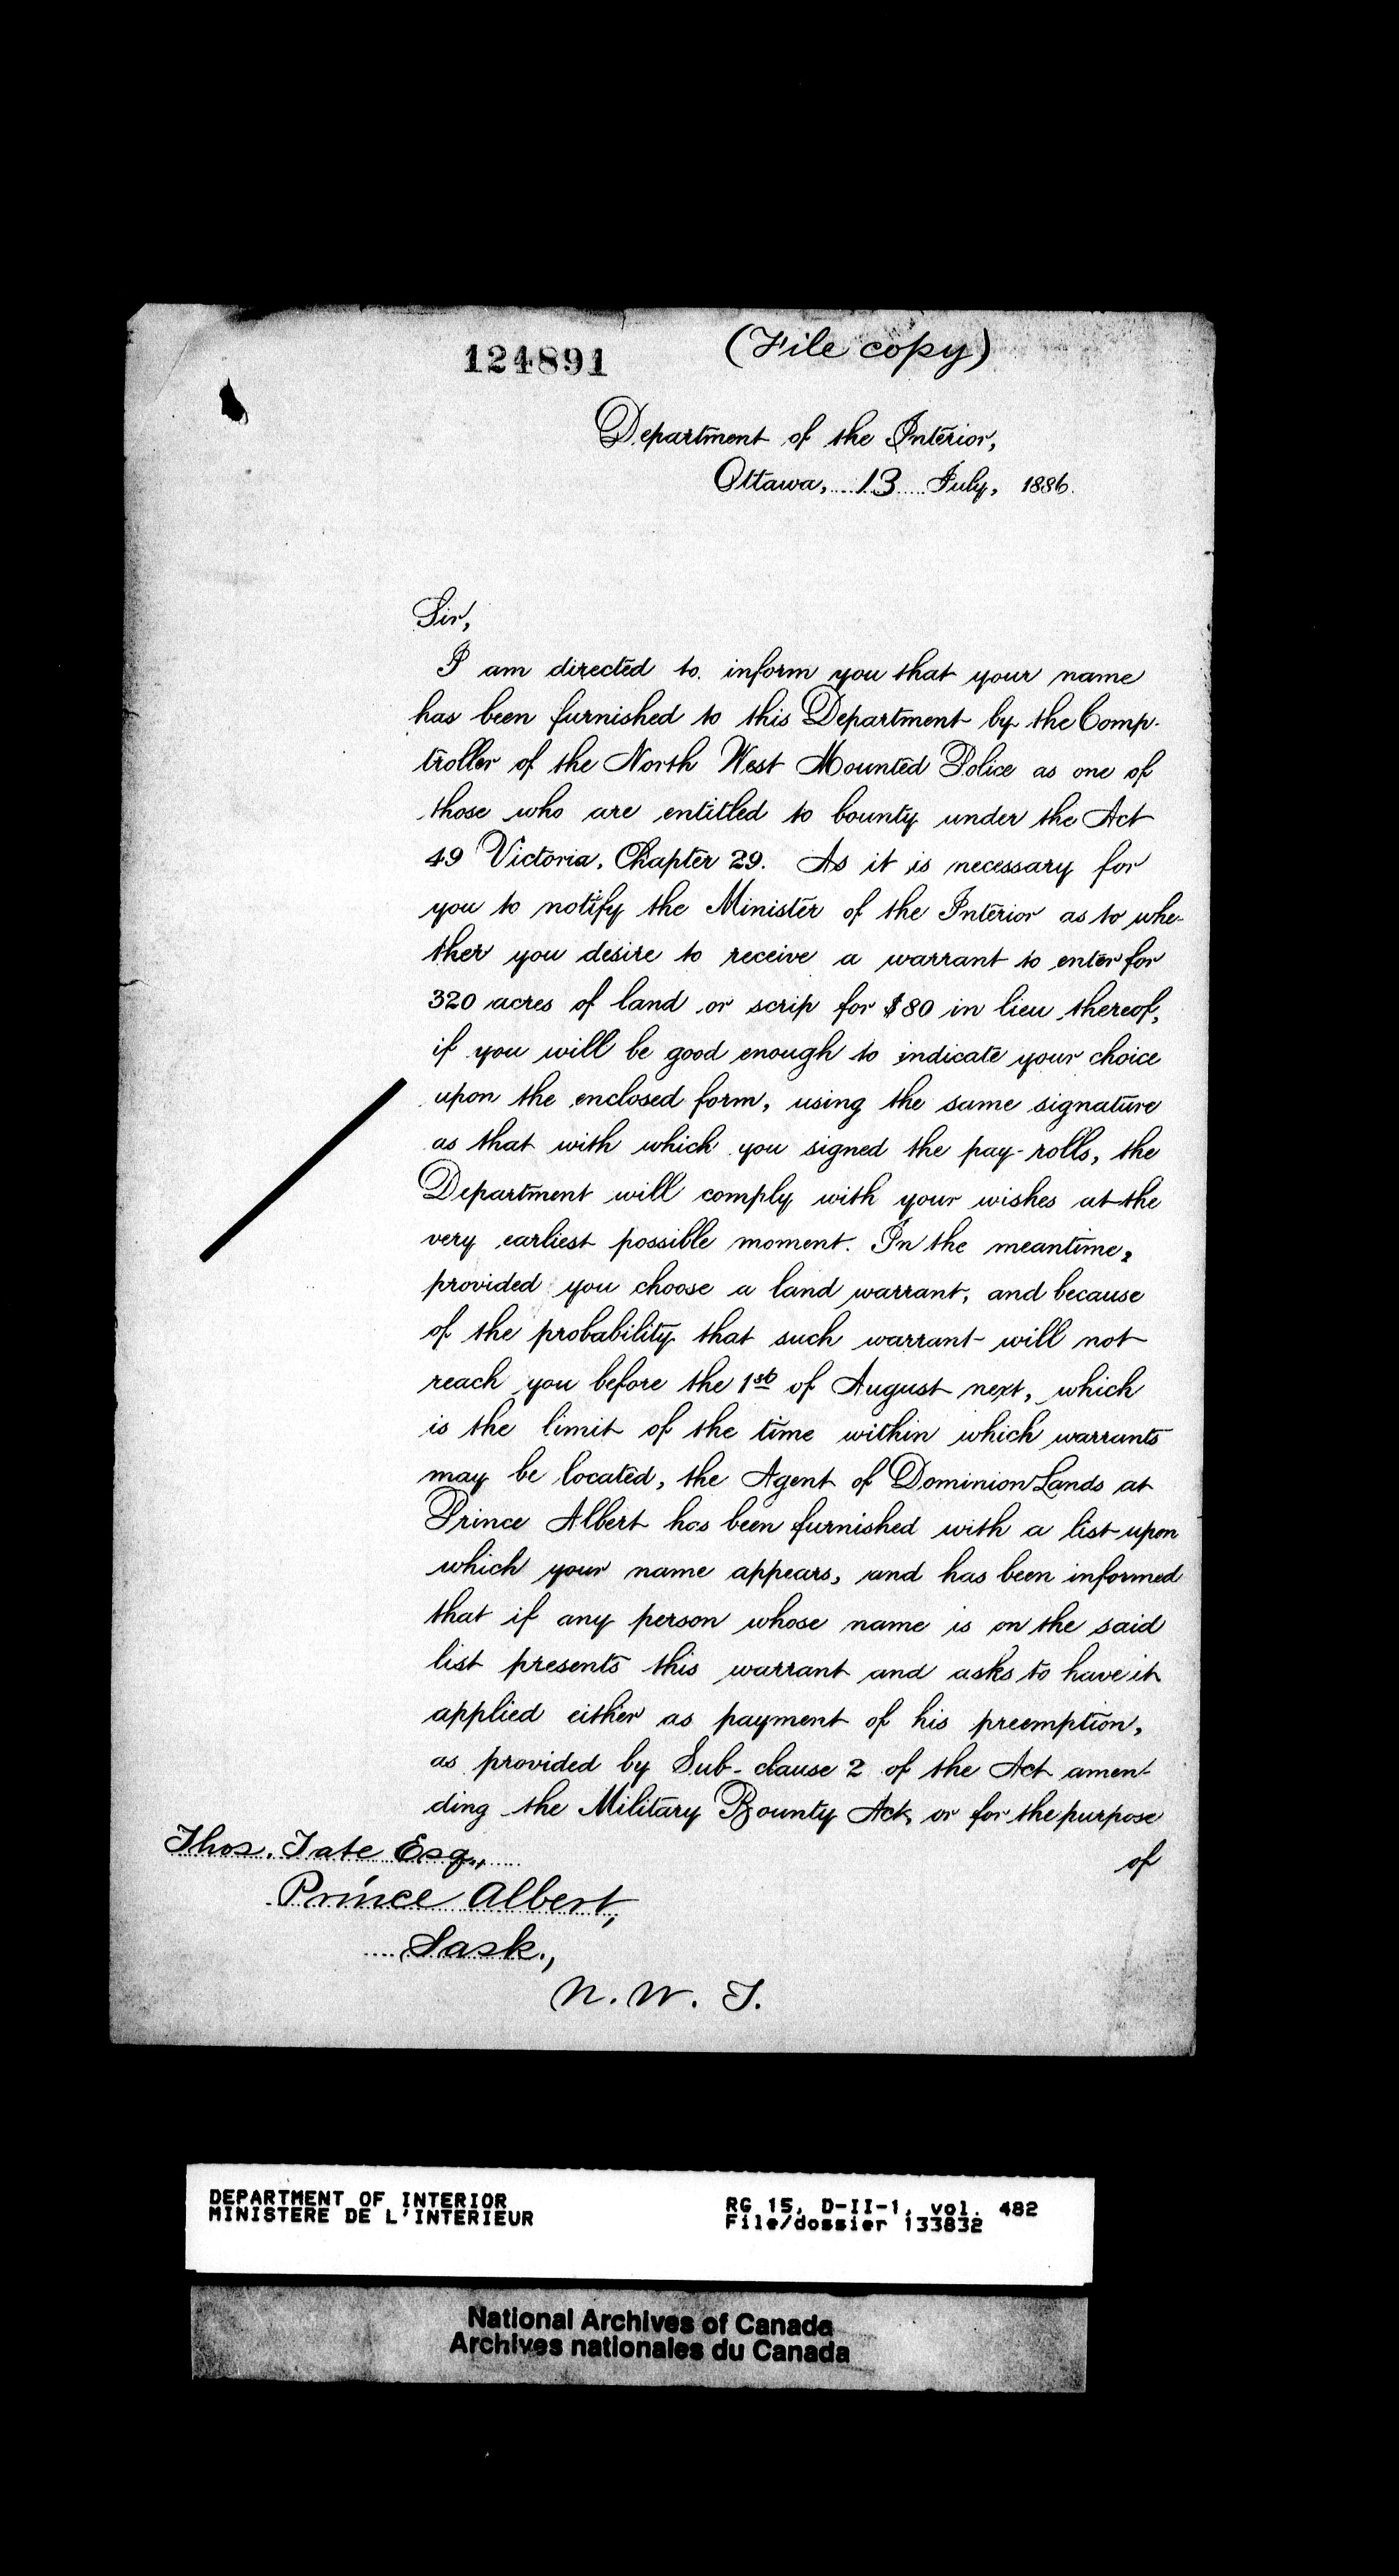 124891 (File copy)
Department of the Interior,
Ottawa, 13 July, 1886.
Sir,
I am directed to inform you that your name
has been furnished to this Department by the Comp-
troller of the North West Mounted Police as one of
those who are entitled to bounty under the Act
49 Victoria, Chapter 29. As it is necessary for
you to notify the Minister of the Interior as to whe-
ther you desire to receive a warrant to enter for
320 acres of land or scrip for $80 in lieu thereof,
if you will be good enough to indicate your choice
upon the enclosed form, using the same signature
as that with which you signed the pay-rolls, the
Department will comply with your wishes at the
very earliest possible moment. In the meantime,
provided you choose a land warrant, and because
of the probability that such warrant will not
reach you before the 1st of August next, which
is the limit of the time within which warrants
may be located, the Agent of Dominion Lands at
Prince Albert has been furnished with a list upon
which your name appears, and has been informed
that if any person whose name is on the said
list presents this warrant and asks to have it
applied either as payment of his preemption,
as provided by Sub-clause 2 of the Act amen-
ding the Military Bounty Act, or for the purpose
of
Thos. Tate Esq.,
Prince Albert,
Sask.,
N.W.T.
DEPARTMENT OF INTERIOR
MINISTERE DE L'INTERIEUR
RG 15, D-II-1, vol. 482
File/dossier 133832
National Archives of Canada
Archives nationales du Canada